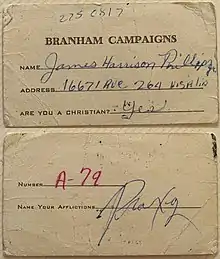 BRANHAM CAMPAIGNS
NAME James Harrison
ADDRESS 16671 Ave 264
ARE YOU A CHRISTIAN? Yes
NUMBER A-79
NAME YOUR AFFLICTIONS Proxy